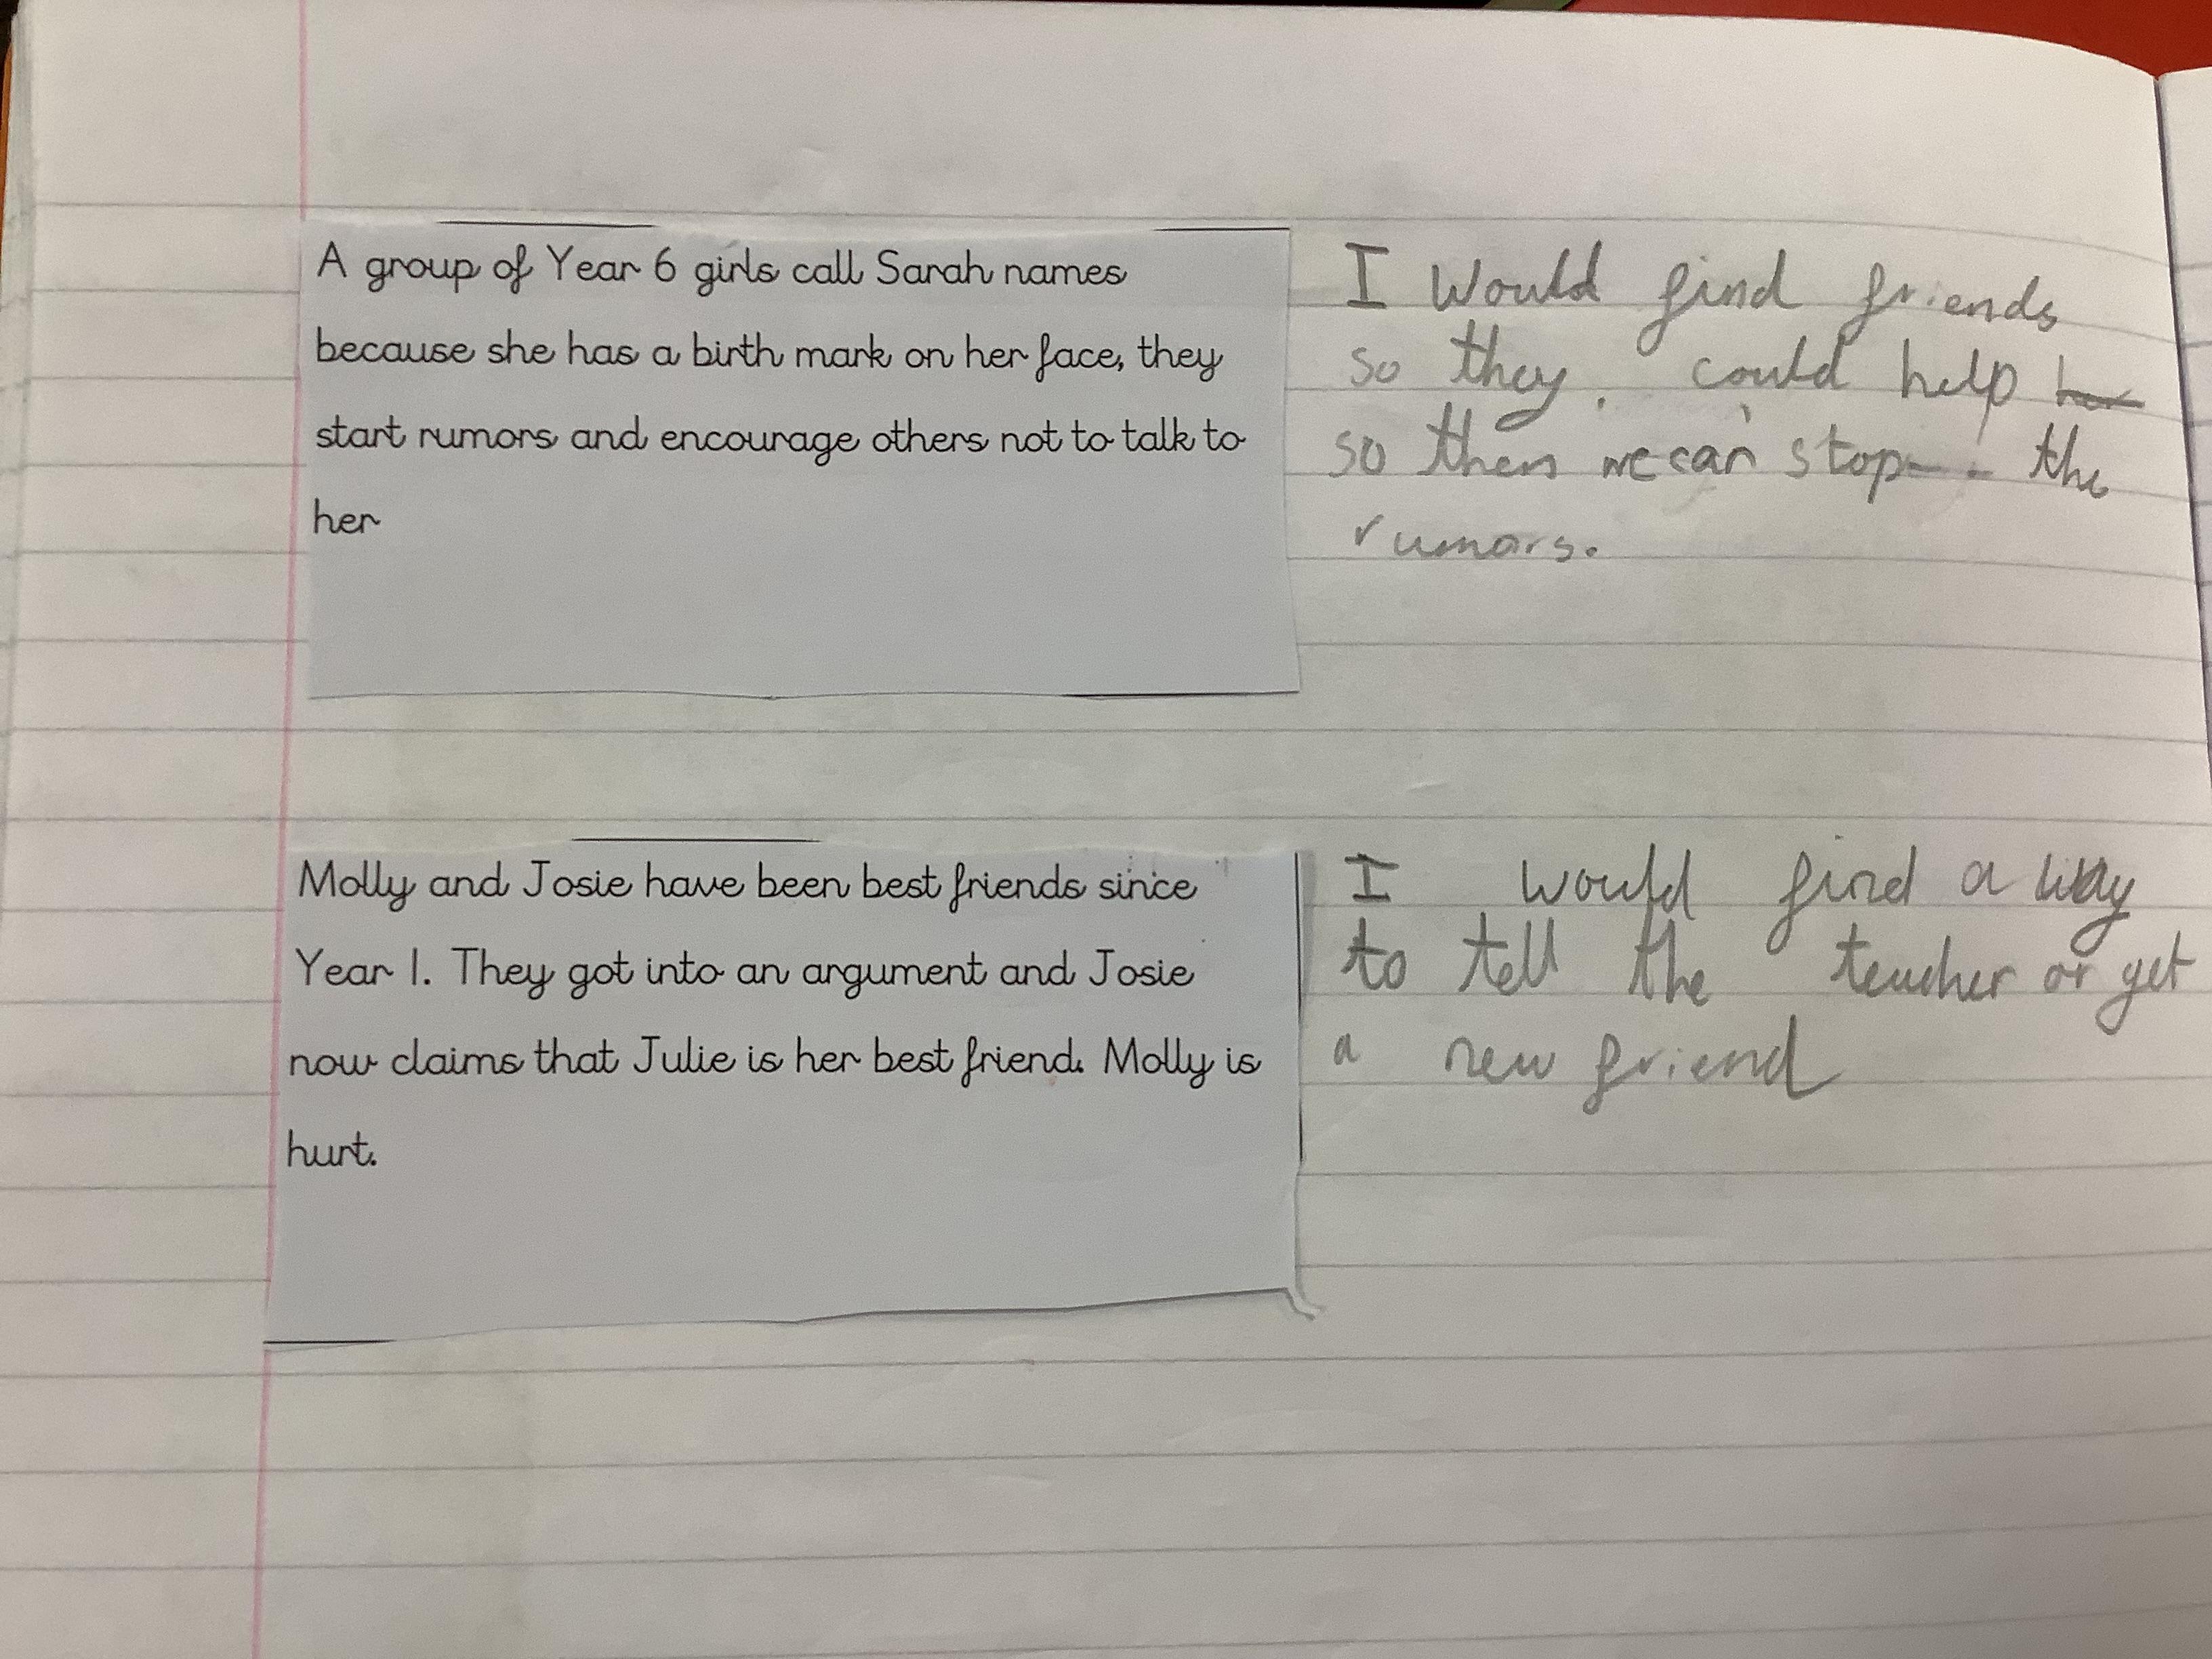 A group of Year 6 girls call Sarah names
because she has a birth mark on her face, they
start rumors and encourage others not to talk to
her
I Would find friends
so they. could help her
so then we can stop the
rumors.
Molly and Josie have been best friends since
Year 1. They got into an argument and Josie
now claims that Julie is her best friend. Molly is
hurt.
I would find a way
to tell the teacher or get
a new friend